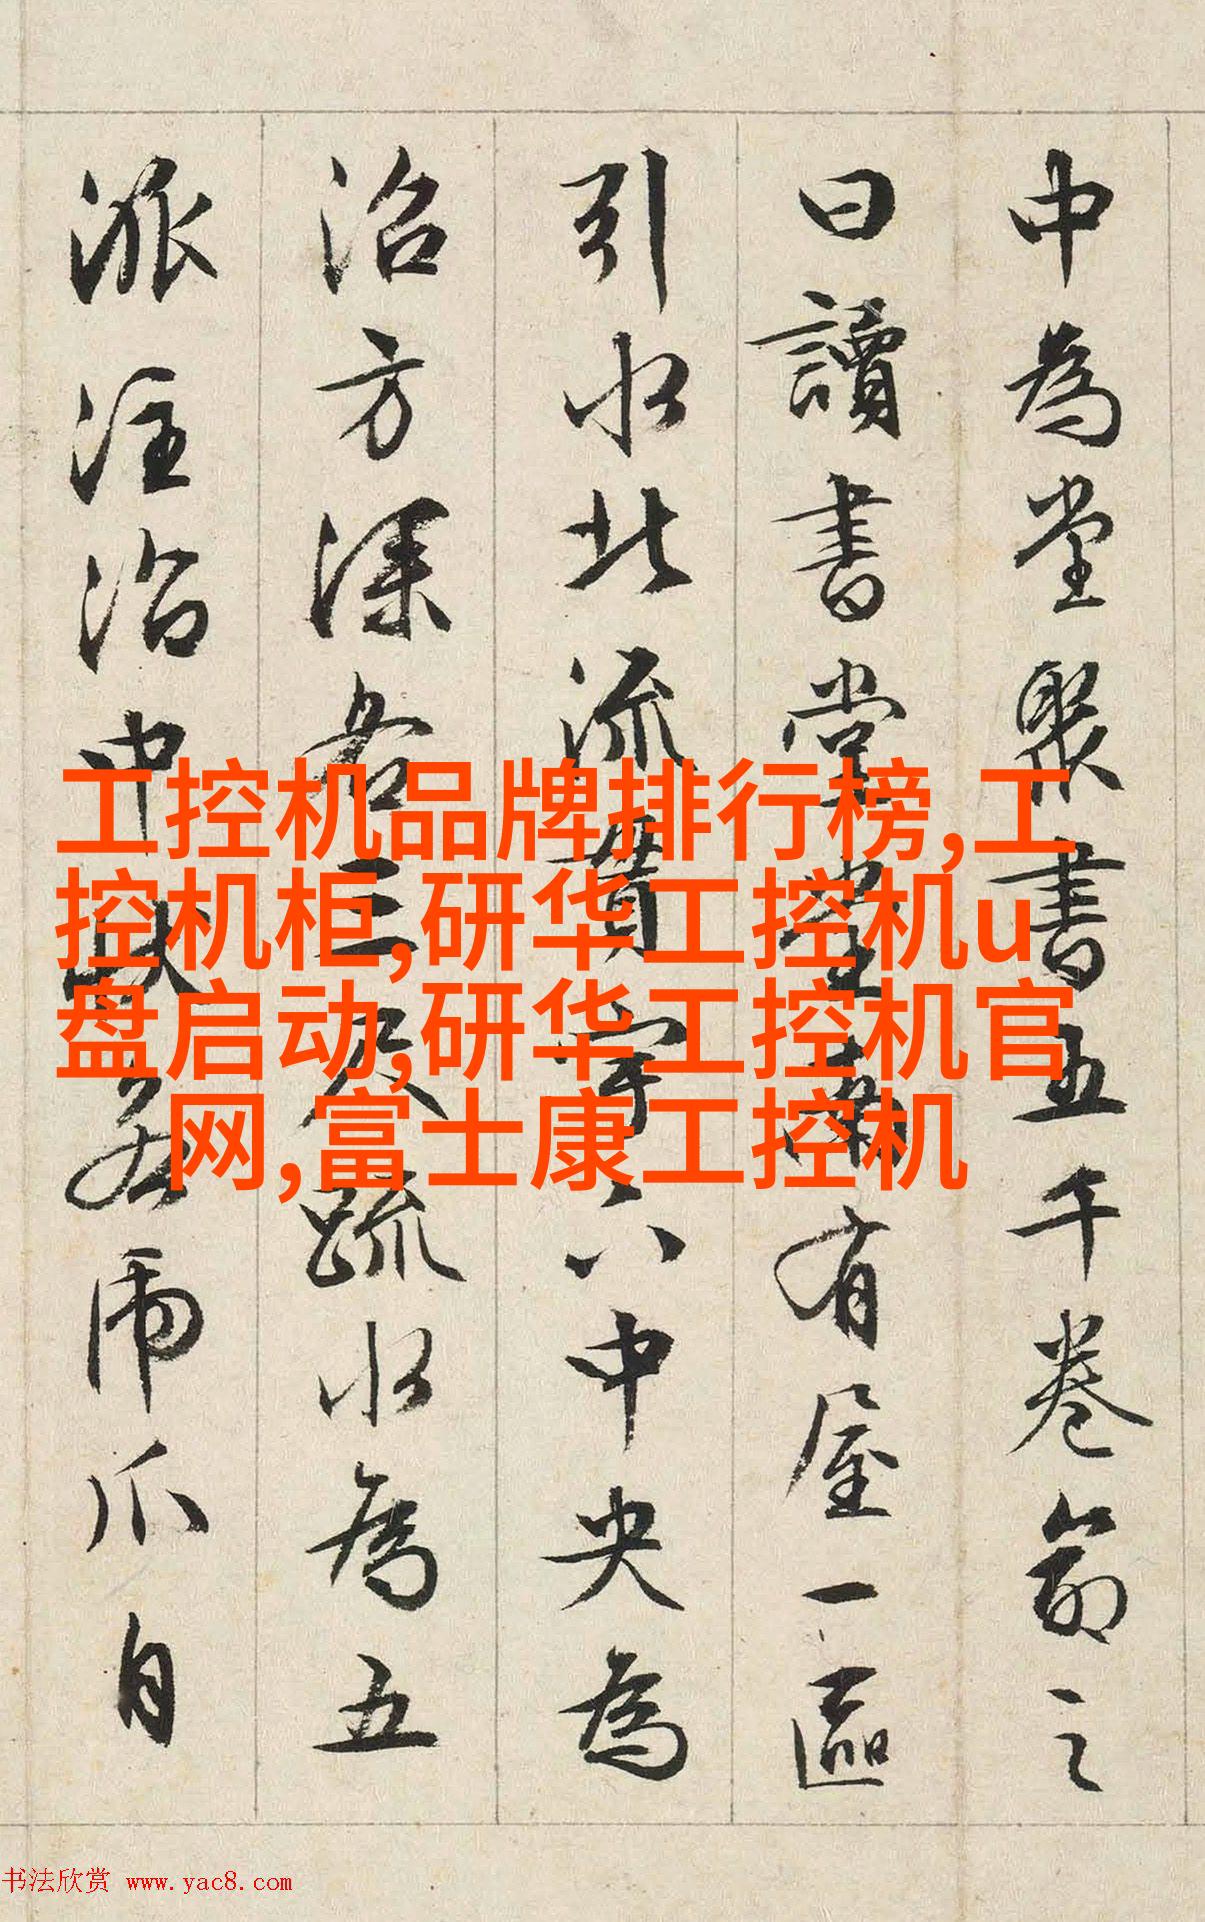 中為堂聚書五千卷命之
曰讀書堂堂南有屋一區
引水北流貫宇下中央為
沼方深各三尺疏水為五
派注沼中狀若虎爪自
工控机品牌排行榜,工
控机柜,研华工控机u
盘启动,研华工控机官
网,富士康工控机
书法欣赏 www.yac8.com